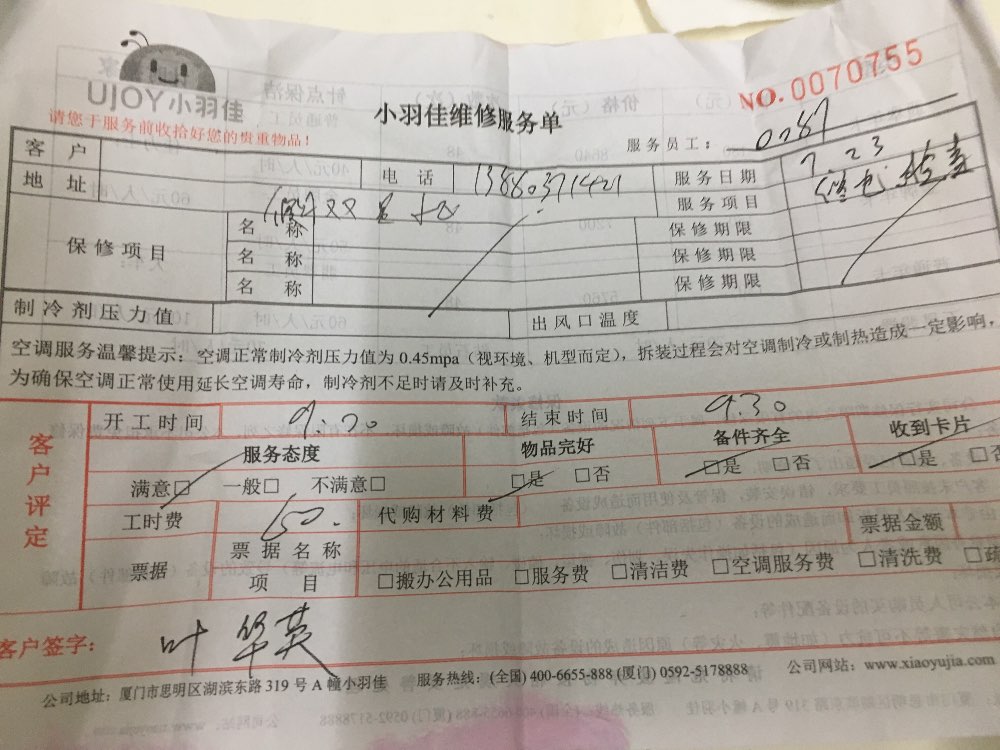 UJOY小羽佳
NO.0070755
小羽佳维修服务单
请您于服务前收拾好您的贵重物品!
服务员工: 0287
客户 电话 服务日期 7 23
地址 服务项目
保修项目 名称 保修期限
名称 保修期限
名称 保修期限
制冷剂压力值 出风口温度
空调服务温馨提示:空调正常制冷剂压力值为 0.45mpa(视环境、机型而定),拆装过程会对空调制冷或制热造成一定影响,
为确保空调正常使用延长空调寿命,制冷剂不足时请及时补充。
客户评定
开工时间 结束时间 9.30
服务态度 物品完好 备件齐全 收到卡片
满意□ 一般□ 不满意□ □是 □否 □是 □否 □是 □否
工时费 150. 代购材料费 票据金额
票据 票据名称
项目 □搬办公用品 □服务费 □清洁费 □空调服务费 □清洗费 □疏
客户签字: 叶华英
公司地址:厦门市思明区湖滨东路 319 号 A 幢小羽佳 服务热线:(全国) 400-6655-888 (厦门) 0592-5178888 公司网站:www.xiaoyujia.com